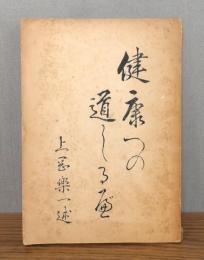 健康への
道しるべ
上樂一述